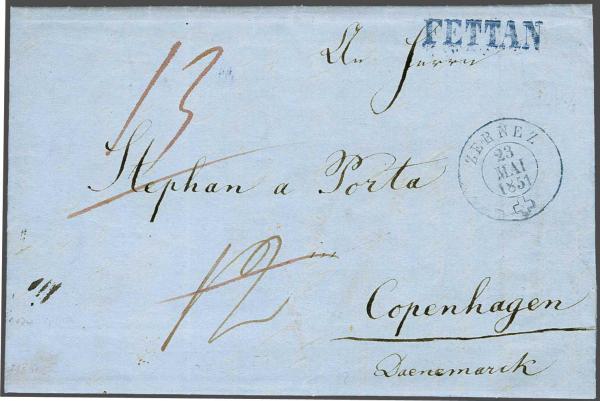 FETTAN
An Herrn
13
ZERNEZ
23
MAI
1851
Stephan a Porta
12
Copenhagen
Daenemarck